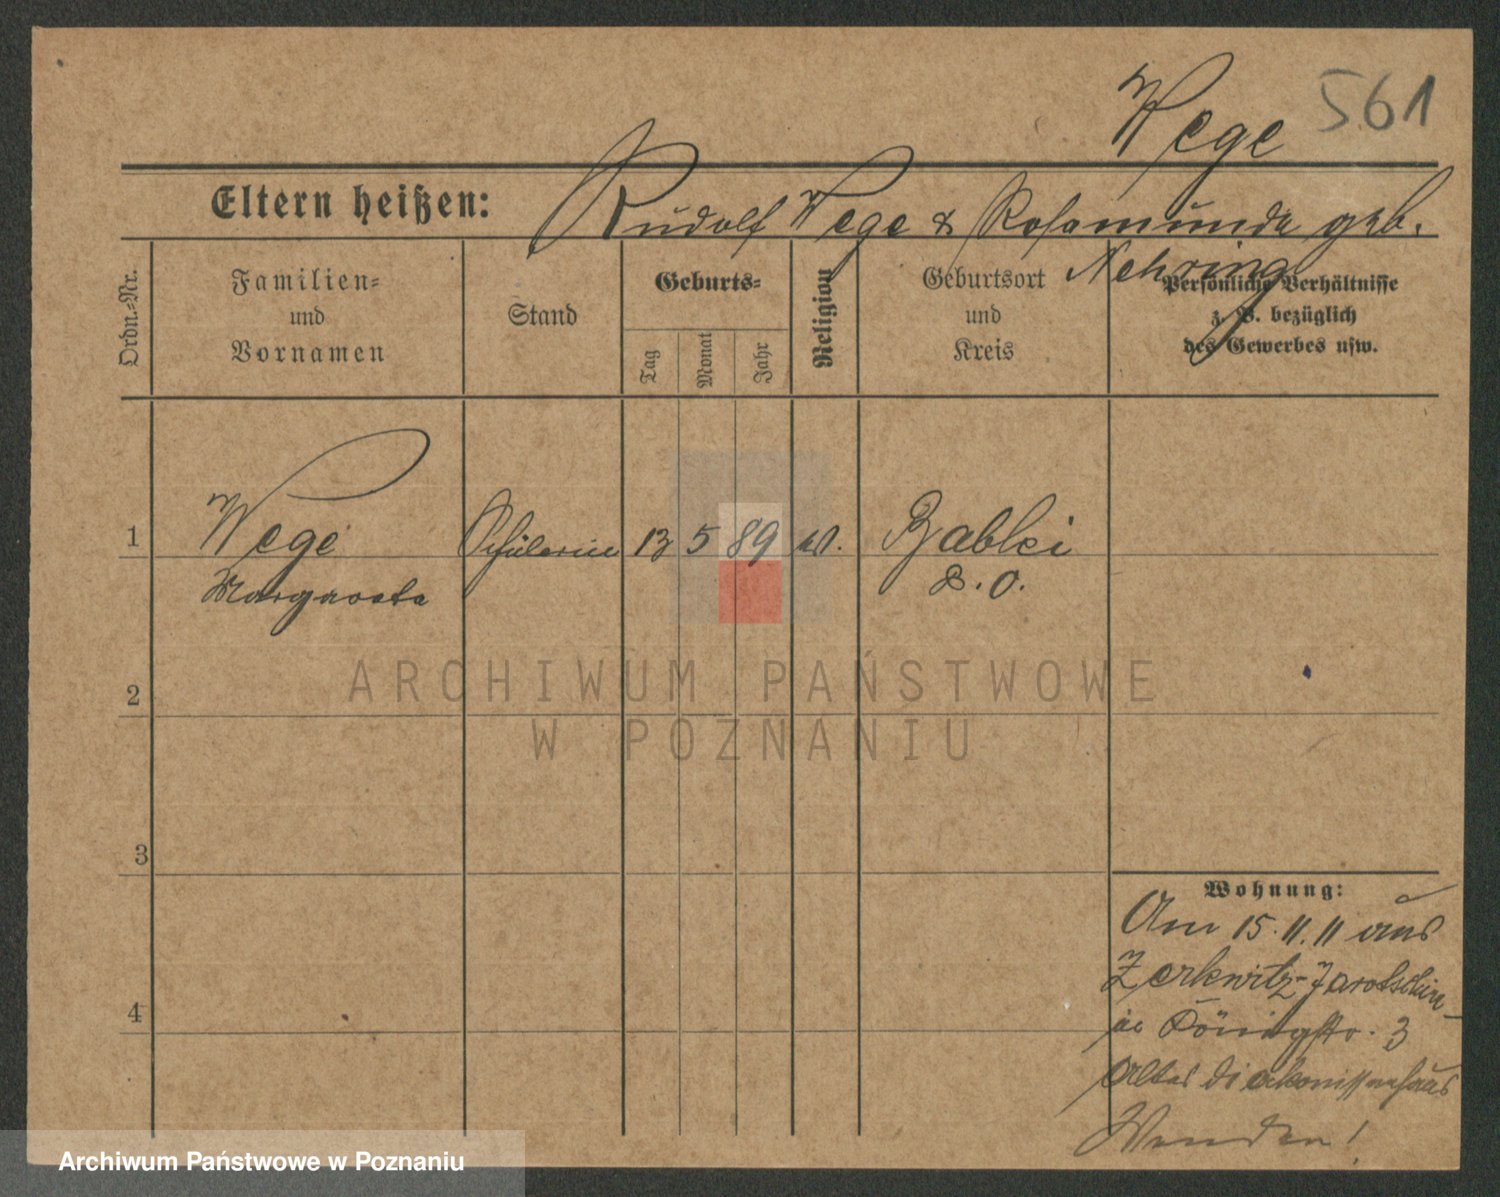 Wege 561
Eltern heißen: Rudolf Wege & Rosamunde geb.
Nehring
Ordn.-Nr.
Familien-
und
Vornamen
Stand
Geburts-
Tag
Monat
Jahr
Religion
Geburtsort
und
Kreis
Persönliche Verhältnisse
z. B. bezüglich
des Gewerbes usw.
1 Wege Schülerin 13 5 89 ev. Babki
Margareta P. O.
2
3
4
Wohnung:
Am 15.11.11 aus
Zerkwitz-Jarotschin
Königstr. 3
altes Diakonissenhaus
Wenden!
ARCHIWUM PAŃSTWOWE
W POZNANIU
Archiwum Państwowe w Poznaniu